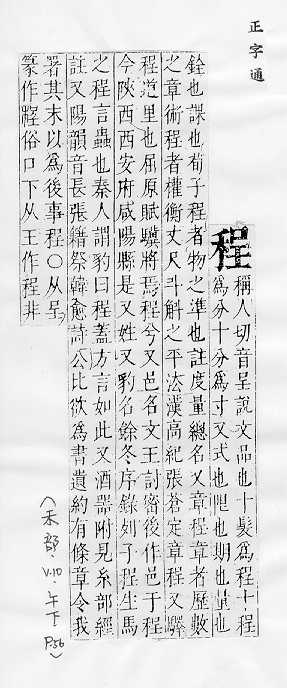 正字通
程 稱人切音呈說文品也十髮爲程十程
爲分十分爲寸又式也限也期也量也
銓也課也荀子程者物之準也註度量總名又章程章者歷數
之章術程者權衡丈尺斗斛之平法漢高紀張蒼定章程又驛
程道里也屈原賦驥將焉程兮又邑名文王討密後作邑于程
今陝西西安府咸陽縣是又姓又豹名餘冬序錄列子程生馬
之程言蟲也秦人謂豹曰程蓋方言如此又酒器附見糸部經
註又陽韻音長張籍祭韓愈詩公比欲爲書遺約有條章令我
署其末以爲後事程○从呈
篆作俗口下从王作程非
(禾部. V.10 午下 P.56)